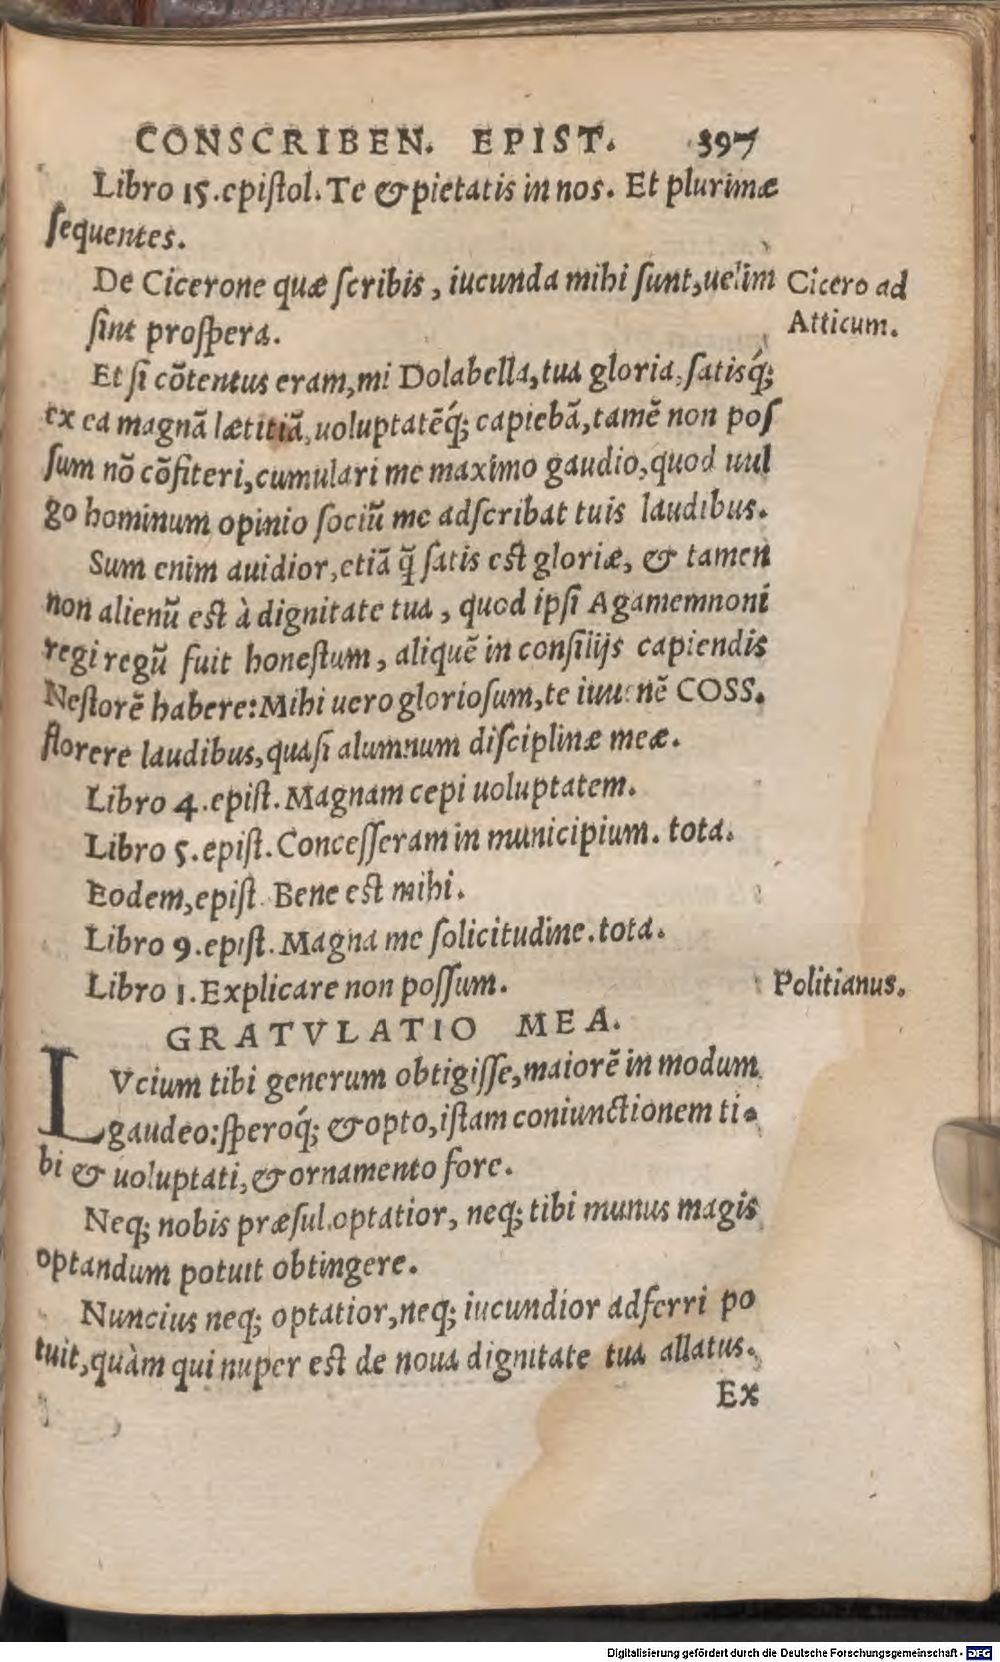 CONSCRIBEN. EPIST. 397
Libro 15. epiſtol. Te & pietatis in nos. Et plurimæ
ſequentes.
De Cicerone quæ ſcribis, iucunda mihi ſunt, uelim
Cicero ad
ſint proſpera.
Atticum.
Et ſi cõtentus eram, mi Dolabella, tua gloria, ſatisq́;
ex ea magnã lætitiã, uoluptatẽq́; capiebã, tamẽ non poſ
ſum nõ cõfiteri, cumulari me maximo gaudio, quod uul
go hominum opinio ſociũ me adſcribat tuis laudibus.
Sum enim auidior, etiã q̃ ſatis eſt gloriæ, & tamen
non alienũ eſt à dignitate tua, quod ipſi Agamemnoni
regi regũ fuit honeſtum, aliquẽ in conſilijs capiendis
Neſtorẽ habere: Mihi uero glorioſum, te iuuenẽ COSS.
florere laudibus, quaſi alumnum diſciplinæ meæ.
Libro 4. epiſt. Magnam cepi uoluptatem.
Libro 5. epiſt. Conceſſeram in municipium. tota.
Eodem, epiſt. Bene eſt mihi.
Libro 9. epiſt. Magna me ſolicitudine. tota.
Libro 1. Explicare non poſſum.
Politianus.
GRATVLATIO MEA.
LVcium tibi generum obtigiſſe, maiorẽ in modum
gaudeo: ſperoq́; & opto, iſtam coniunctionem ti-
bi & uoluptati, & ornamento fore.
Neq; nobis præſul optatior, neq; tibi munus magis
optandum potuit obtingere.
Nuncius neq; optatior, neq; iucundior adferri po
tuit, quàm qui nuper eſt de noua dignitate tua allatus.
Ex
Digitalisierung gefördert durch die Deutsche Forschungsgemeinschaft - DFG